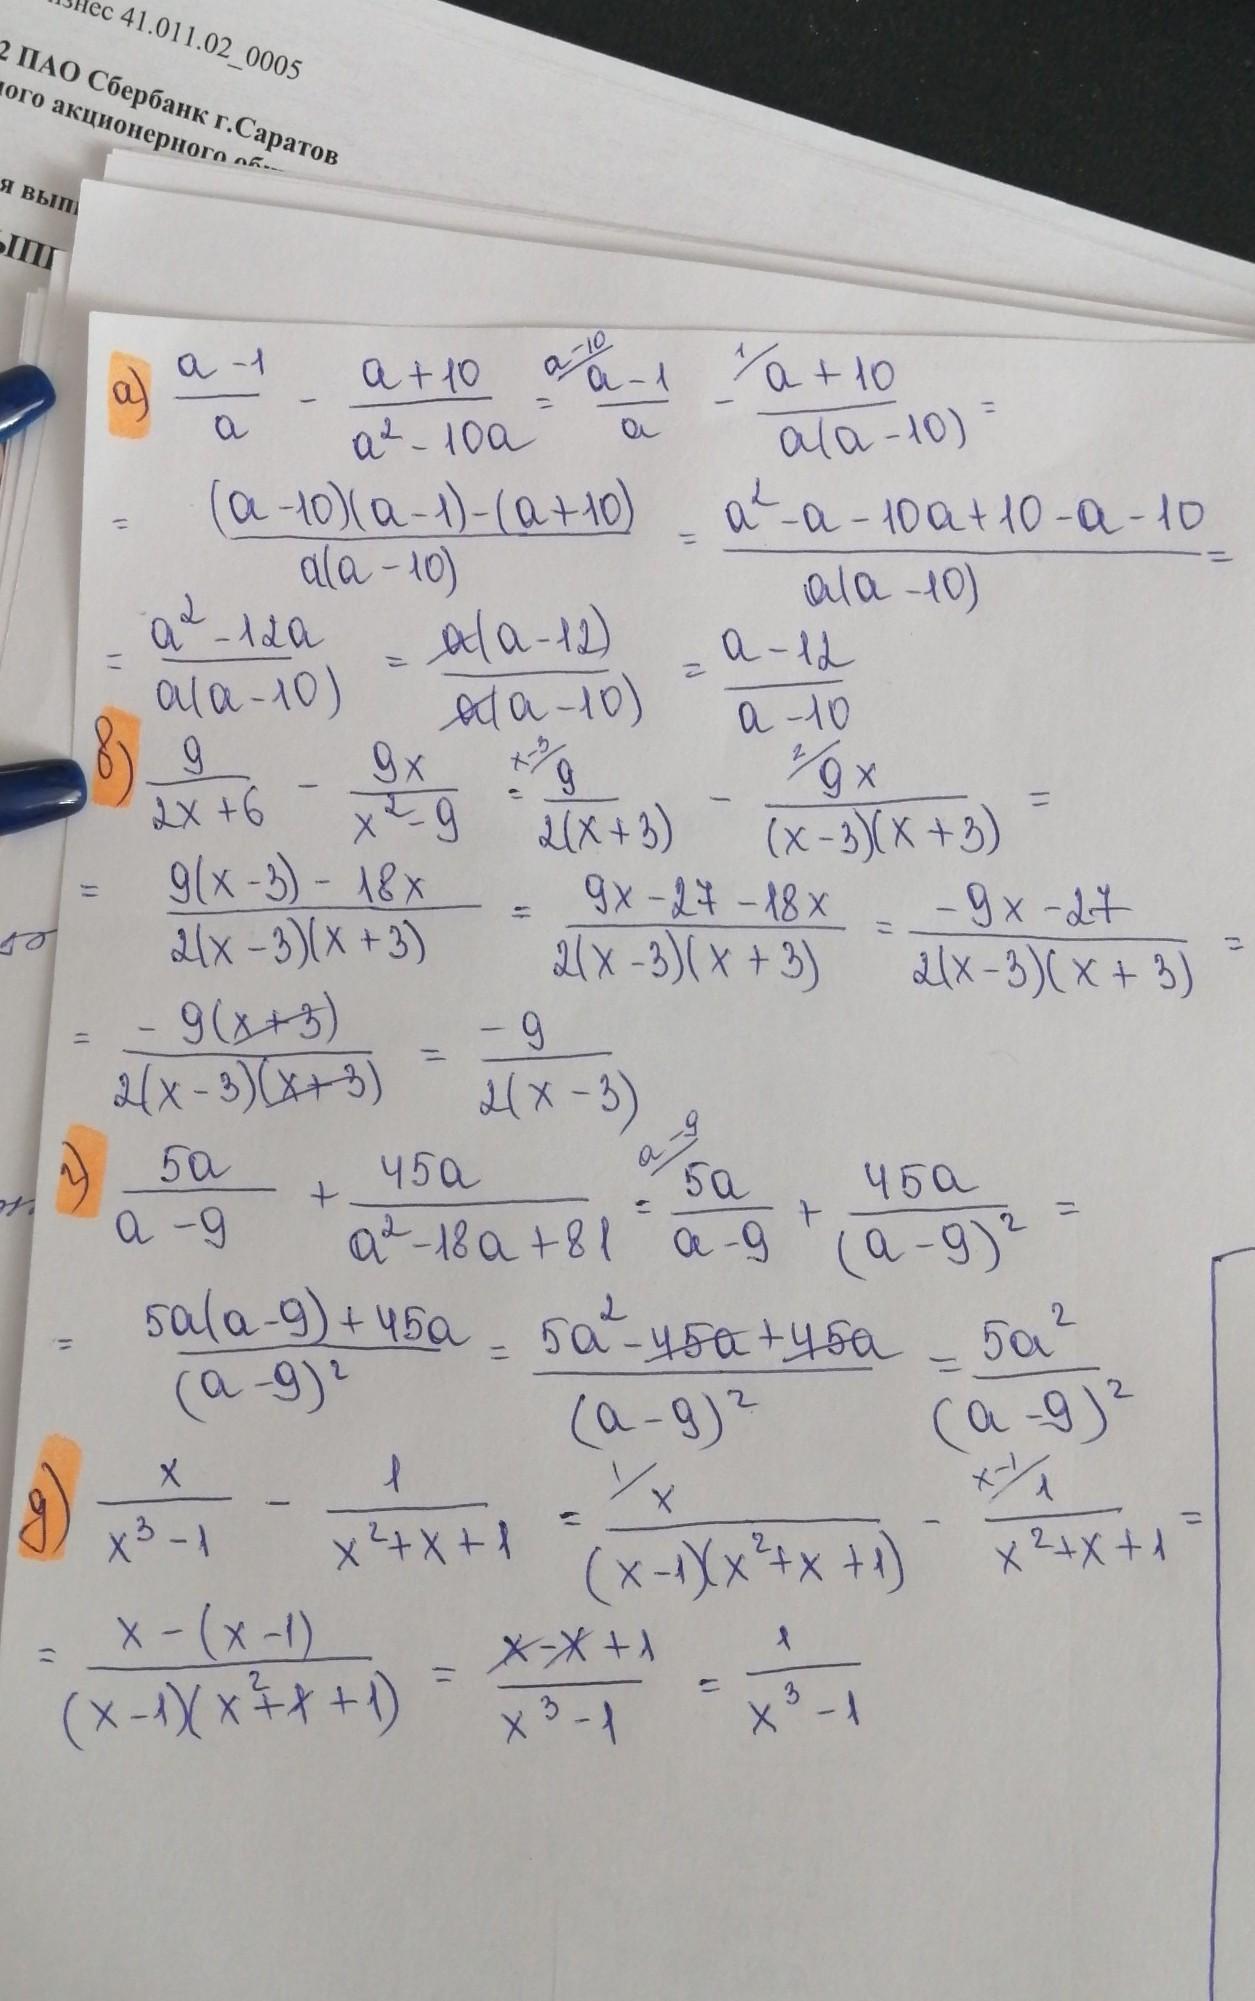 знес 41.011.02_0005
2 ПАО Сбербанк г.Саратов
ного акционерного
я
а) (a-1)/a - (a+10)/(a²-10a) = ᵃ⁻¹⁰/(a-1)/a - ¹/(a+10)/(a(a-10)) =
= ((a-10)(a-1)-(a+10))/(a(a-10)) = (a²-a-10a+10-a-10)/(a(a-10)) =
= (a²-12a)/(a(a-10)) = (a(a-12))/(a(a-10)) = (a-12)/(a-10)
в) 9/(2x+6) - 9x/(x²-9) = ˣ⁻³/9/(2(x+3)) - ²/9x/((x-3)(x+3)) =
= (9(x-3)-18x)/(2(x-3)(x+3)) = (9x-27-18x)/(2(x-3)(x+3)) = (-9x-27)/(2(x-3)(x+3)) =
= (-9(x+3))/(2(x-3)(x+3)) = (-9)/(2(x-3))
г) 5a/(a-9) + 45a/(a²-18a+81) = ᵃ⁻⁹/5a/(a-9) + 45a/(a-9)² =
= (5a(a-9)+45a)/(a-9)² = (5a²-45a+45a)/(a-9)² = 5a²/(a-9)²
д) x/(x³-1) - 1/(x²+x+1) = ¹/x/((x-1)(x²+x+1)) - ˣ⁻¹/1/(x²+x+1) =
= (x-(x-1))/((x-1)(x²+x+1)) = (x-x+1)/(x³-1) = 1/(x³-1)